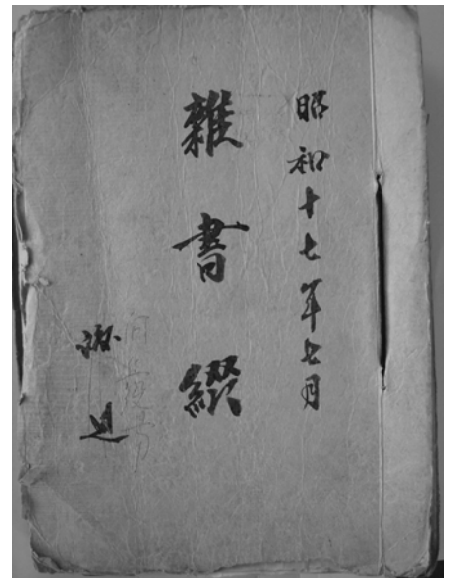 昭和十七年七月
雜書綴